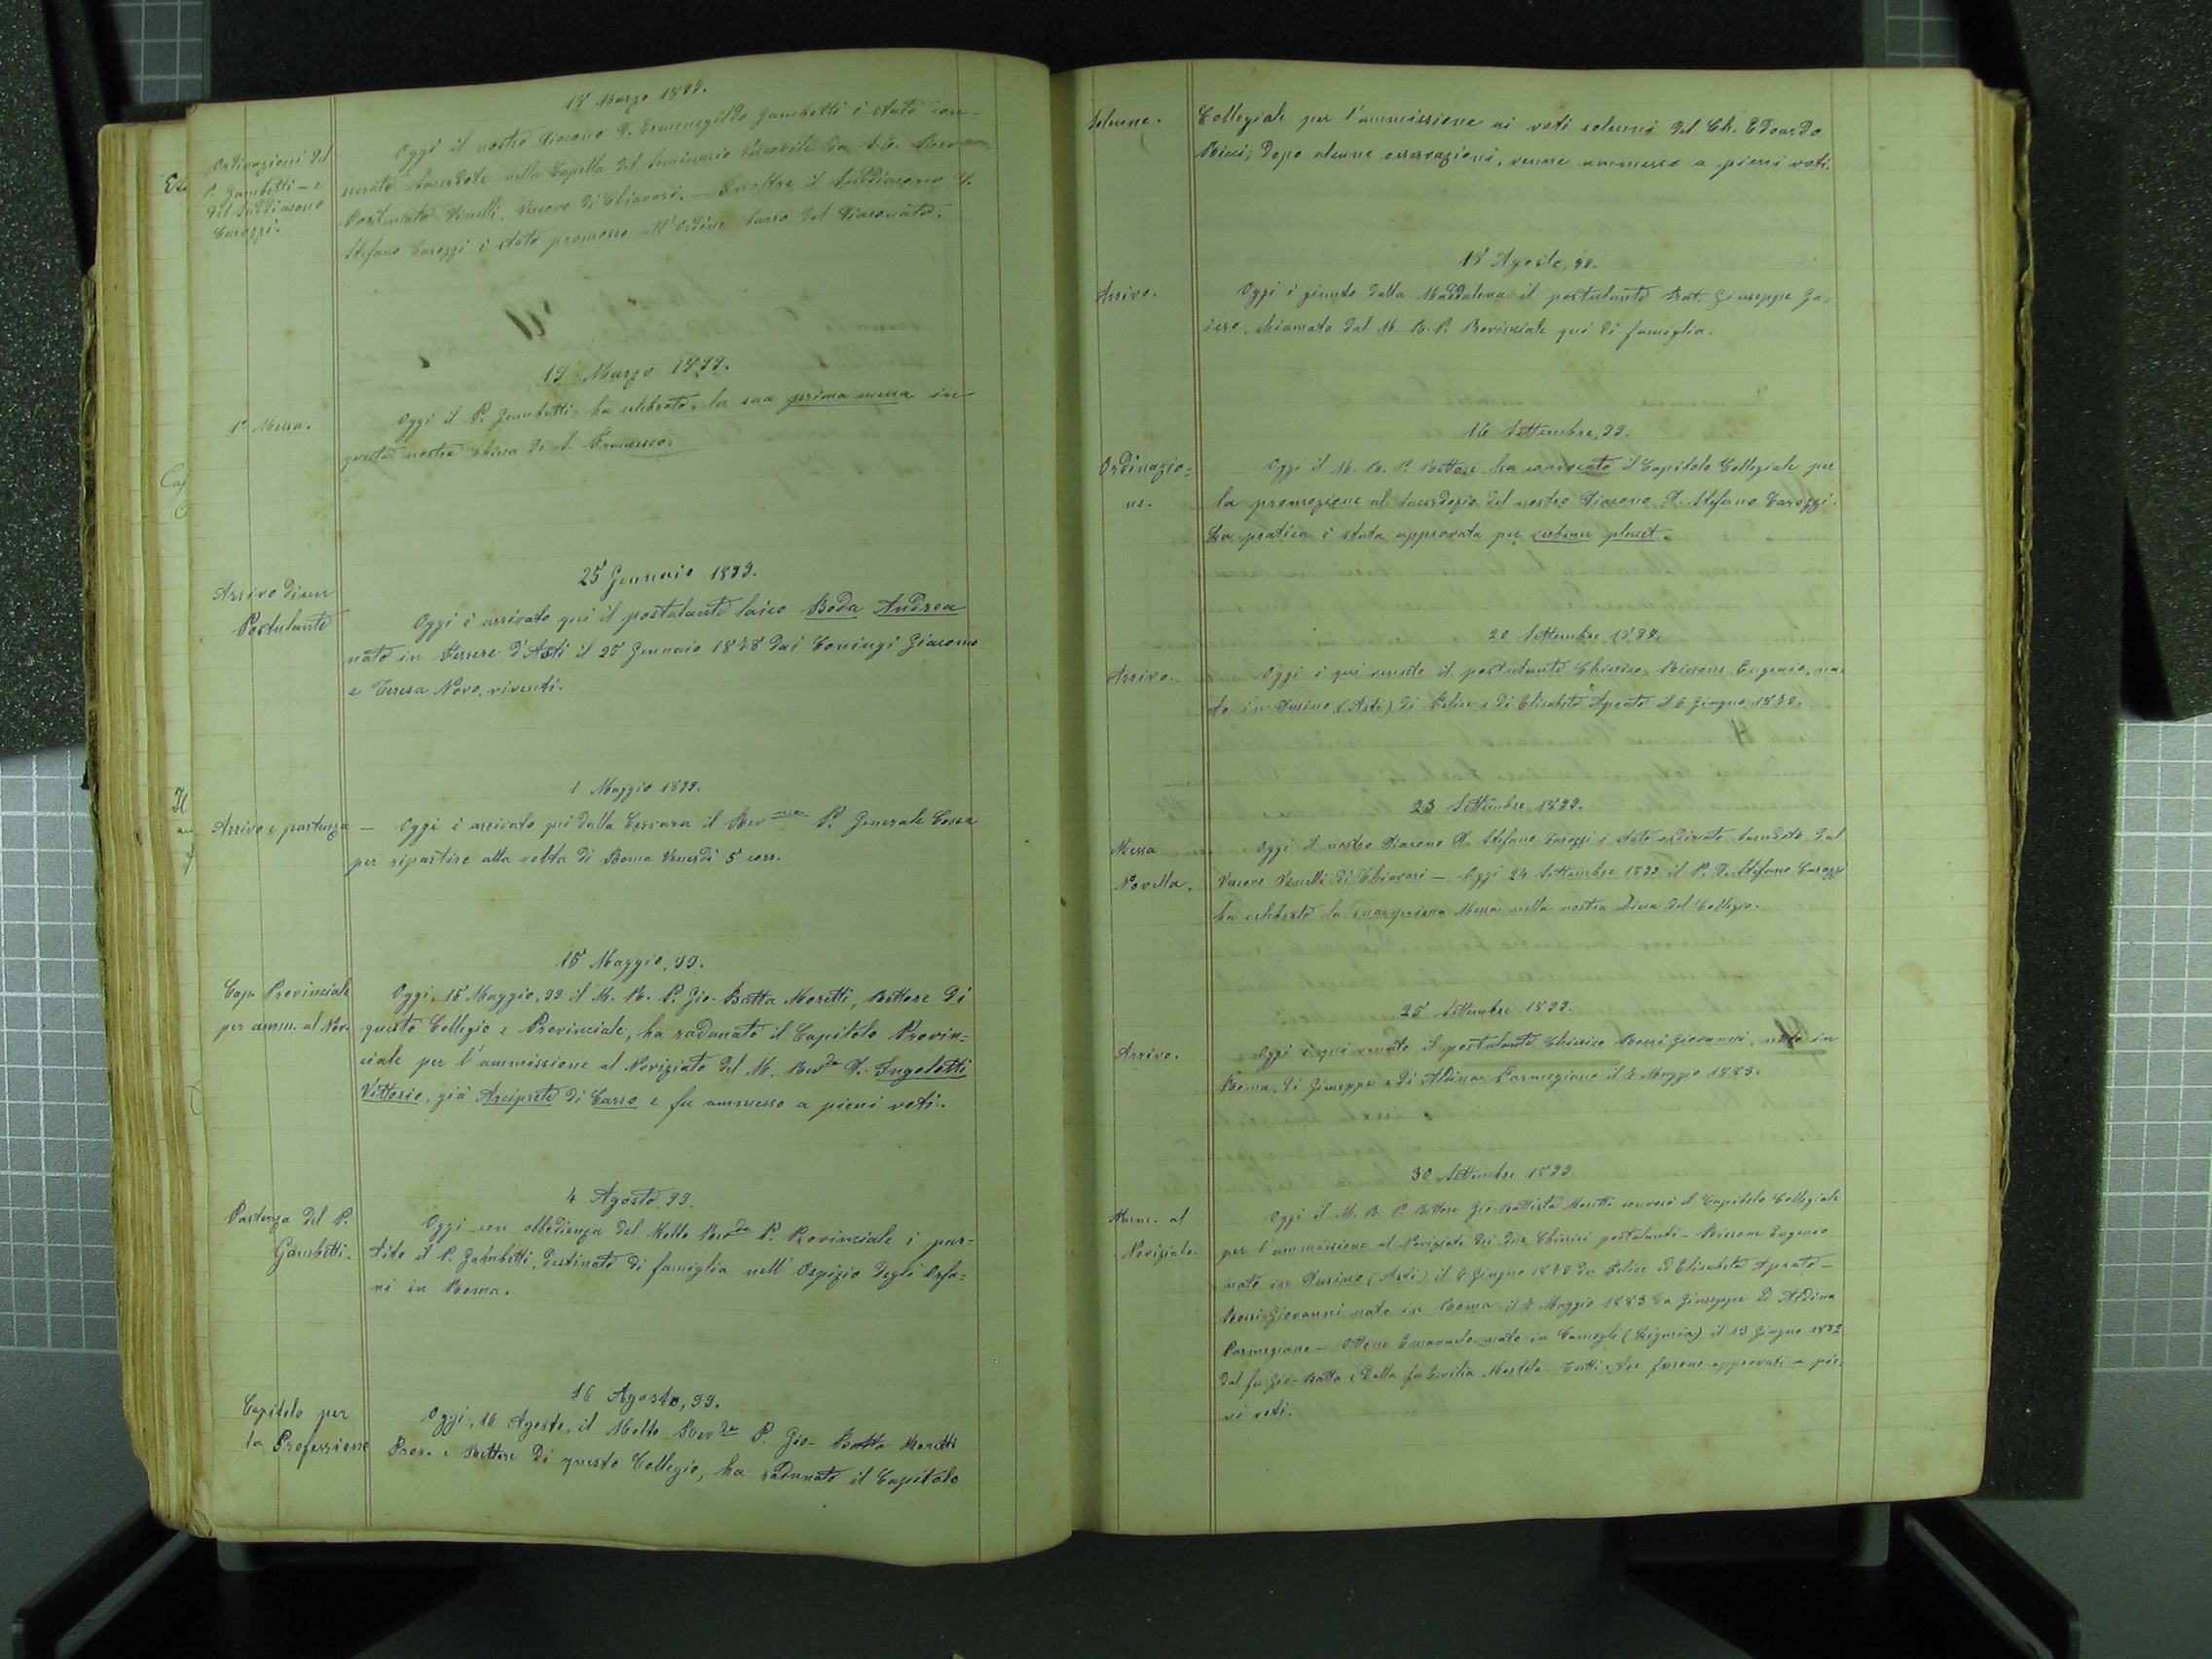 18 Marzo 1899.
Ordinazioni del
P. Gambetti - e
del Suddiacono
Carozzi.
Oggi il nostro Diacono D. Ermenegildo Gambetti è stato con-
secrato Sacerdote nella Capella del Seminario Vescovile da S. E. Rev
Fortunato Vinelli, Vescovo di Chiavari. - Inoltre il Suddiacono D.
Stefano Carozzi è stato promosso all'Ordine Sacro del Diaconato.
19 Marzo 1899.
1ª Messa.
Oggi il P. Gambetti ha celebrato la sua prima messa in
questa nostra Chiesa di S. Francesco.
25 Gennaio 1899.
Arrivo di un
Postulante
Oggi è arrivato qui il postulante laico Boda Andrea
nato in Ferrere d'Asti il 25 Gennaio 1878 dai Coniugi Giacomo
e Teresa Novo, viventi.
1 Maggio 1899.
Arrivo e partenza
- Oggi è arrivato qui dalla Cervara il Rev P. Generale Cossa
per ripartire alla volta di Roma Venerdì 5 corr.
15 Maggio, 99.
Cap. Provinciale
per amm. al Nov.
Oggi, 15 Maggio, 99 il M. R. P. Gio- Batta Moretti, Rettore di
questo Collegio e Provinciale, ha radunato il Capitolo Provin=
ciale per l'ammissione al Noviziato del M. Revdo D. Ingoletti
Vittorio, già Arciprete di Casso e fu ammesso a pieni voti.
4 Agosto 99.
Partenza del P.
Gambetti.
Oggi con obbedienza del Molto Revdo P. Provinciale è par=
tito il P. Gambetti, destinato di famiglia nell'Ospizio degli Orfa=
ni in Roma.
16 Agosto, 99.
Capitolo per
la Professione
Oggi, 16 Agosto, il Molto Revdo P. Gio- Batta Moretti
Prov. e Rettore di questo Collegio, ha radunato il Capitolo
Solenne.
Collegiale per l'ammissione ai voti solenni del Ch. Edoardo
Ricci; dopo alcune osservazioni, venne ammesso a pieni voti.
18 Agosto, 99.
Arrivo.
Oggi è giunto dalla Maddalena il postulante Frat. Giuseppe Ga-
iero, chiamato dal M. R. P. Provinciale qui di famiglia.
16 Settembre, 99.
Ordinazio=
ne.
Oggi il M. R. P. Rettore ha convocato il Capitolo Collegiale per
la promozione al Sacerdozio del nostro Diacono D. Stefano Carozzi.
La pratica è stata approvata per placet.
20 Settembre 1899.
Arrivo.
Oggi è qui venuto il postulante Chierico Bissone Eugenio, na-
to in Dusino (Asti) di Felice e di Elisabetta Aprato il 6 Giugno
23 Settembre 1899.
Messa
Novella.
Oggi il nostro Diacono D. Stefano Carozzi è stato ordinato Sacerdote dal
Vescovo Vinelli di Chiavari - Oggi 24 Settembre 1899 il P. D. Stefano Carozzi
ha celebrato la sua prima Messa nella nostra Chiesa del Collegio.
25 Settembre 1899.
Arrivo.
Oggi è qui venuto il postulante Chierico Rossi Giovanni, nato in
Roma, di Giuseppe e di Aldina Parmegiano il 4 Maggio 1883.
30 Settembre 1899
Amm. al
Noviziato.
Oggi il M. R. P. Rettore Gio Battista Moretti convocò il Capitolo Collegiale
per l'ammissione al Noviziato dei due Chierici postulanti - Bissone Eugenio
nato in Dusino (Asti) il 6 Giugno da Felice ed Elisabetta Aprato -
Rossi Giovanni nato in Roma il 4 Maggio 1883 da Giuseppe ed Aldina
Parmegiano - Ottone Emanuele nato in Camogli (Liguria) il 13 Giugno
dal fu Gio-Batta e dalla fu Emilia Tutti furono approvati a pie-
ni voti.